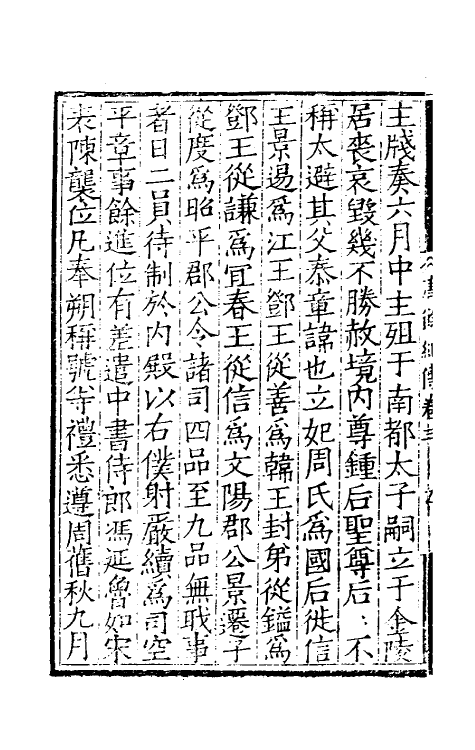 主牋奏六月中主殂于南都太子嗣立于金陵
居喪哀毀幾不勝赦境內尊鍾后聖尊后〻不
稱太避其父泰章諱也立妃周氏爲國后徙信
王景逷爲江王鄧王從善爲韓王封弟從鎰爲
鄧王從謙爲宜春王從信爲文陽郡公景遷子
從度爲昭平郡公令諸司四品至九品無職事
者日二員待制於內殿以右僕射嚴續爲司空
平章事餘進位有差遣中書侍郎馮延魯如宋
表陳襲位凡奉朔稱號等禮悉遵周舊秋九月